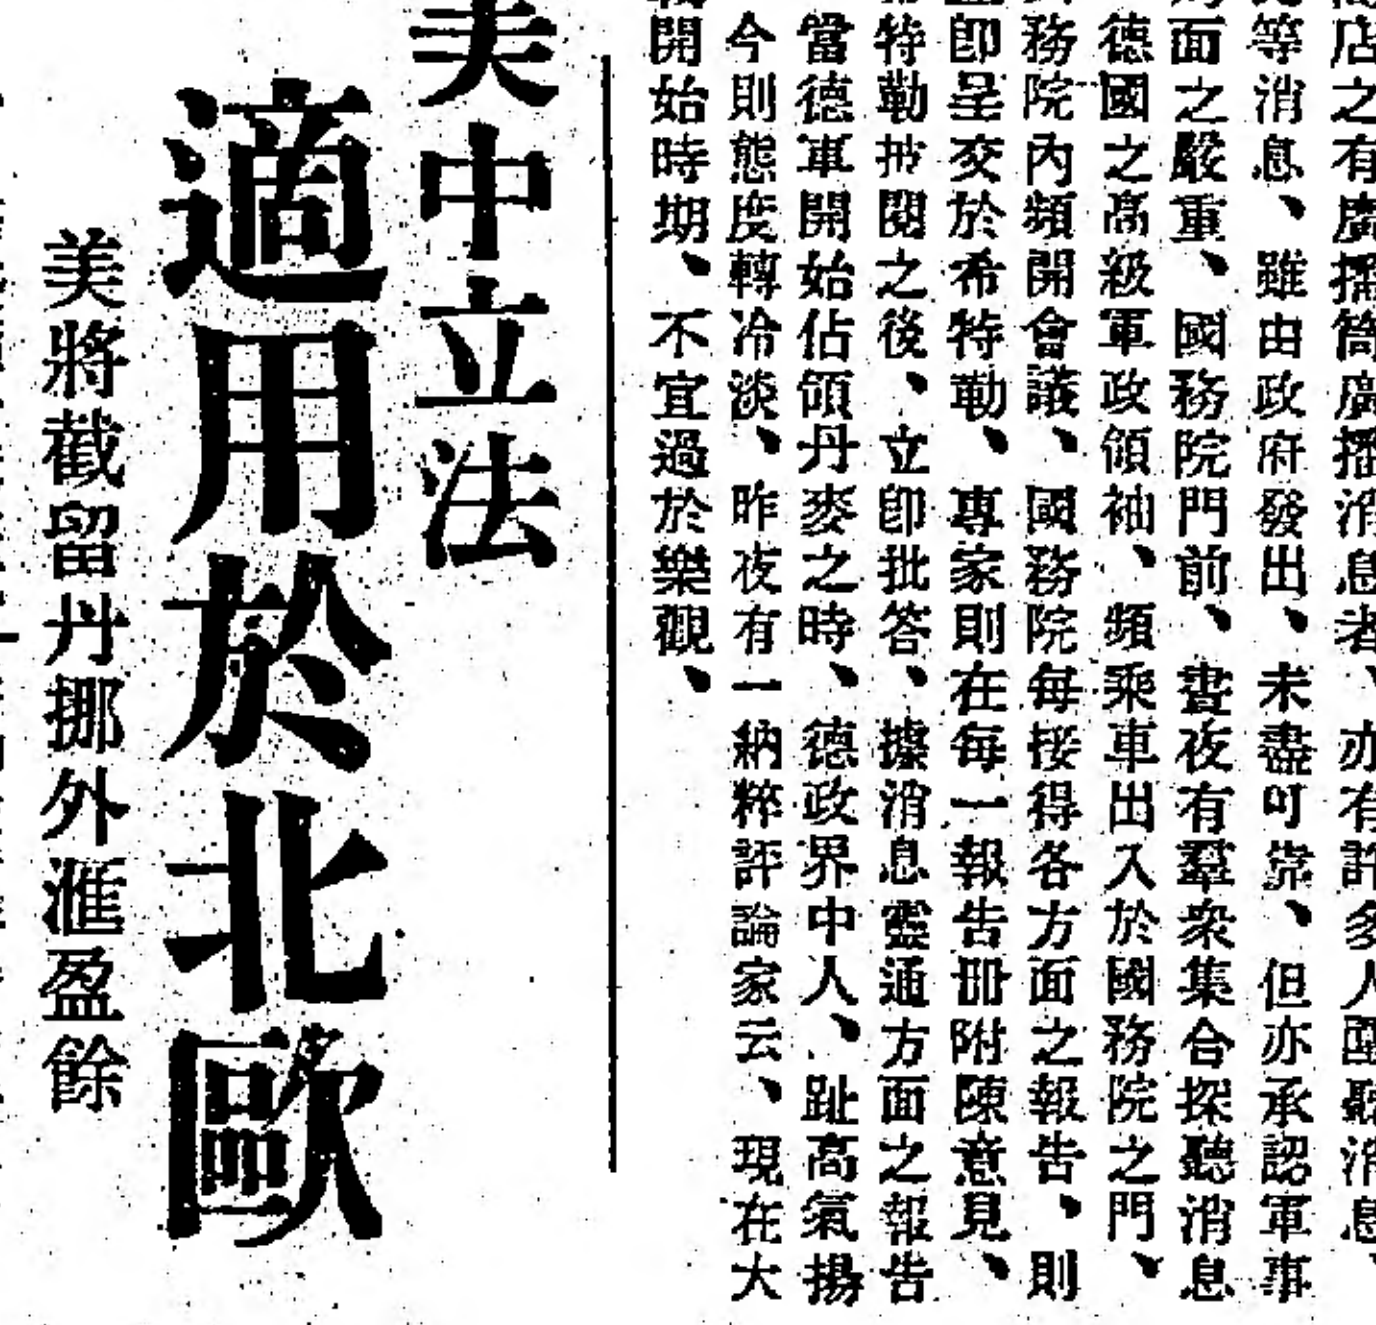 店之有廣播筒廣播消息者、亦有許多人圍聽消息、
等消息、雖由政府發出、未盡可靠、但亦承認軍事
面之嚴重、國務院門前、晝夜有羣衆集合探聽消息
德國之高級軍政領袖、頻乘車出入於國務院之門、
務院內頻開會議、國務院每接得各方面之報告、則
卽呈交於希特勒、專家則在每一報告册附陳意見、
特勒披閱之後、立卽批答、據消息靈通方面之報告
當德軍開始佔領丹麥之時、德政界中人、趾高氣揚
今則態度轉冷淡、昨夜有一納粹評論家云、現在大
開始時期、不宜過於樂觀、
美中立法
適用於北歐
美將截留丹挪外滙盈餘